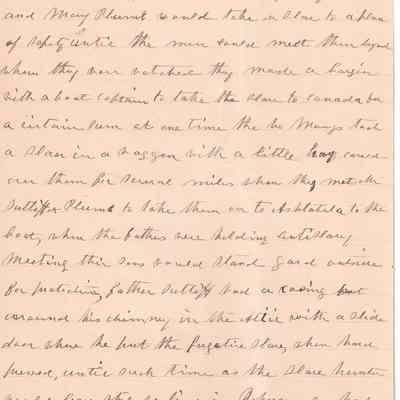 and Mary Plumt would take a slave to a place
of safety until the men could meet them
when they wer watched they made a bargin
with a boat captain to take the slave to canada for
a cirtain sum at one time the two Marys took
a slave in a waggon with a little hay
over them for several miles when they met Mr
Sutliff or Plumt to take them on to Ashtabula to the
boat, when the fathers were holding antislavry
meeting thir sons would stand gard outside
for protection, father Sutliff had a casing
around his chimney in the attic with a slide
door where he put the fugetive slave, when hard
pursued, until such time as the slave hunter